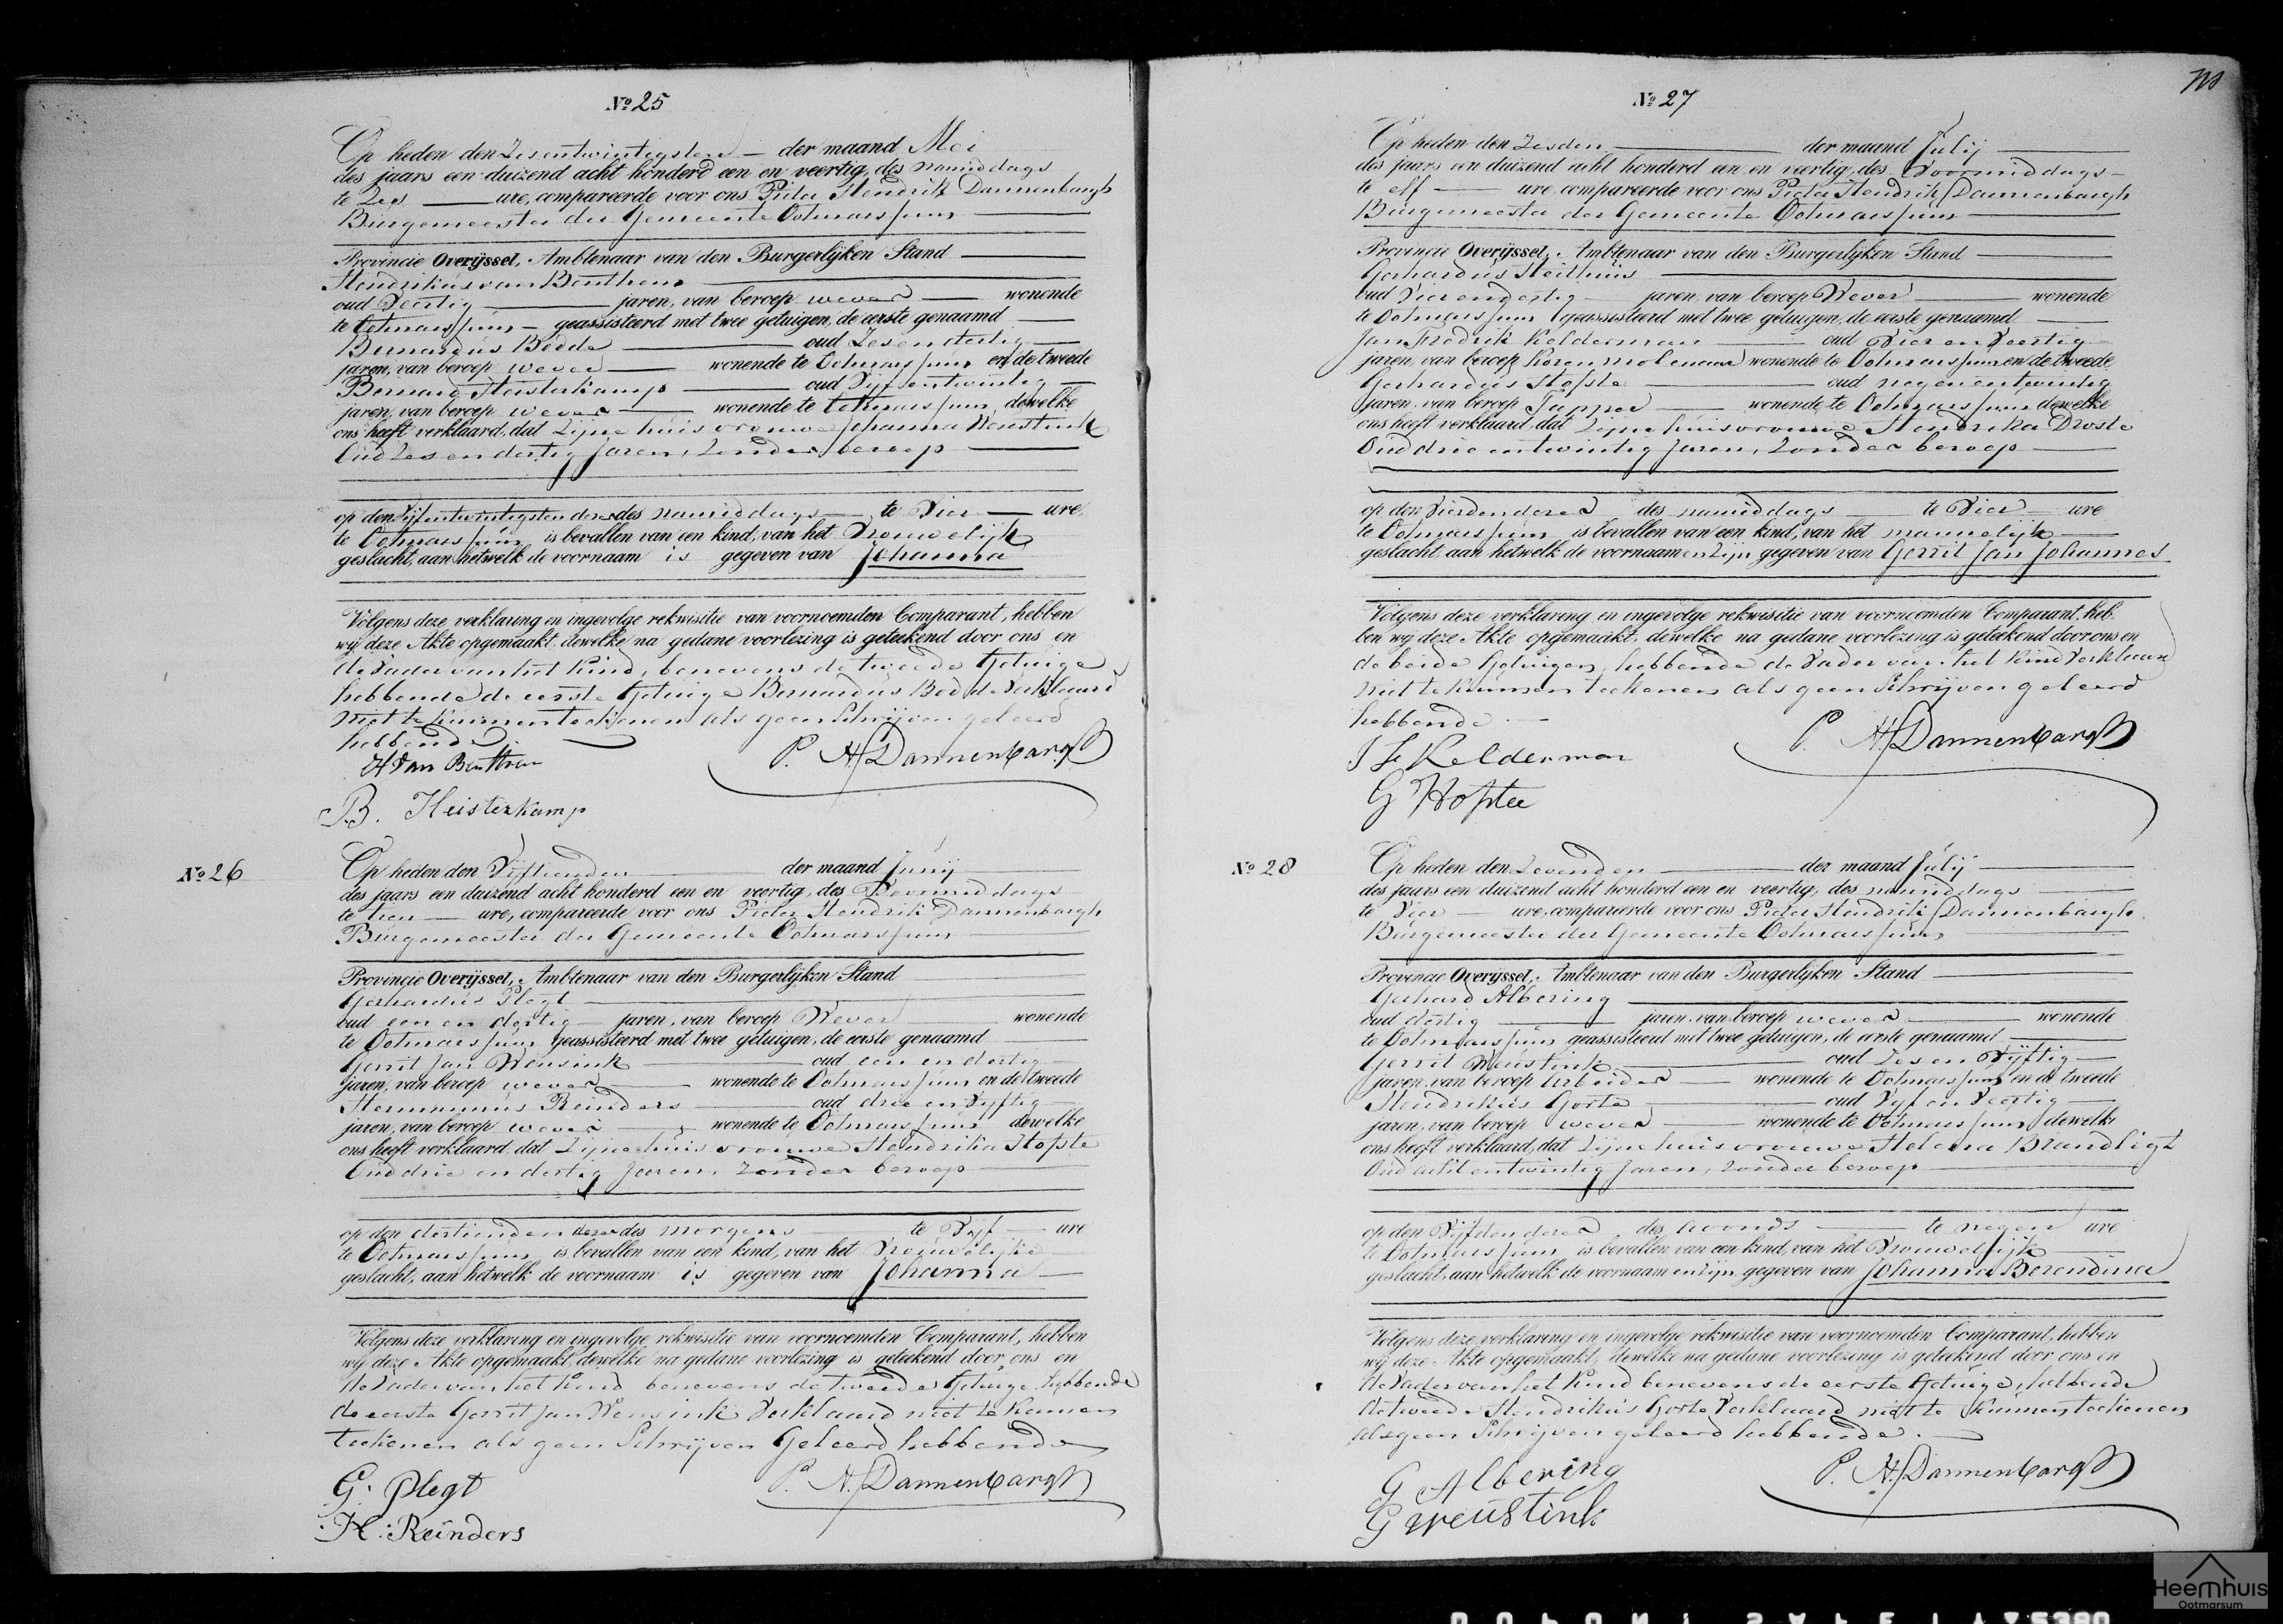 Nº 25
Op heden den Zesentwintigsten der maand Mei
des jaars een duizend acht honderd een en veertig, des namiddags
te Zes ure, compareerde voor ons Pieter Hendrik Dannenbargh
Burgemeester der Gemeente Ootmarssum
Provincie Overijssel, Ambtenaar van den Burgerlijken Stand
Hendrikus van Benthem
oud Veertig jaren, van beroep wever wonende
te Ootmarssum geassisteerd met twee getuigen, de eerste genaamd
Bernardus Bödde oud Zesendertig
jaren, van beroep wever wonende te Ootmarssum en de tweede
Bernard Heisterkamp oud Vijfentwintig
jaren, van beroep wever wonende te Ootmarssum dewelke
ons heeft verklaard, dat Zijne huisvrouwe Johanna Weustink
Oud Zes en dertig Jaren, Zonder beroep
op den Vijfentwintigsten dezer des namiddags te Vier ure
te Ootmarssum is bevallen van een kind, van het Vrouwelijk
geslacht, aan hetwelk de voornaam is gegeven van Johanna
Volgens deze verklaring en ingevolge rekwisitie van voornoemden Comparant, hebben
wij deze Akte opgemaakt, dewelke na gedane voorlezing is geteekend door ons en
de Vader van het Kind, benevens de tweede Getuige
hebbende de eerste Getuige Bernardus Bödde Verklaard
niet te kunnen teekenen als geen Schrijven geleerd
hebbende
H Van Benthem P. H. Dannenbargh
B. Heisterkamp
Nº 26
Op heden den Vijftienden der maand Junij
des jaars een duizend acht honderd een en veertig, des Voormiddags
te tien ure, compareerde voor ons Pieter Hendrik Dannenbargh
Burgemeester der Gemeente Ootmarssum
Provincie Overijssel, Ambtenaar van den Burgerlijken Stand
Gerhardus Plegt
oud een en dertig jaren, van beroep Wever wonende
te Ootmarssum geassisteerd met twee getuigen, de eerste genaamd
Gerrit Jan Wensink oud een en dertig
jaren, van beroep wever wonende te Ootmarssum en de tweede
Hermannus Reinders oud drie en Vijftig
jaren, van beroep wever wonende te Ootmarssum dewelke
ons heeft verklaard, dat Zijne huisvrouwe Hendrika Hofste
Oud drie en dertig Jaren, Zonder beroep
op den dertienden dezer des morgens te Vijf ure
te Ootmarssum is bevallen van een kind, van het Vrouwelijke
geslacht, aan hetwelk de voornaam is gegeven van Johanna
Volgens deze verklaring en ingevolge rekwisitie van voornoemden Comparant, hebben
wij deze Akte opgemaakt, dewelke na gedane voorlezing is geteekend door ons en
de Vader van het Kind benevens de tweede Getuige, hebbende
de eerste Gerrit Jan Wensink Verklaard niet te kunnen
teekenen als geen Schrijven Geleerd hebbende
G. Plegt P. H. Dannenbargh
H. Reinders
Nº 27
Op heden den Zesden der maand Julij
des jaars een duizend acht honderd een en veertig, des Voormiddags
te elf ure compareerde voor ons Pieter Hendrik Dannenbargh
Burgemeester der Gemeente Ootmarssum
Provincie Overijssel, Ambtenaar van den Burgerlijken Stand
Gerhardus Heithuis
oud Vierendertig jaren, van beroep Wever wonende
te Ootmarssum geassisteerd met twee getuigen, de eerste genaamd
Jan Fredrik Kelderman oud Vier en Veertig
jaren, van beroep Korenmolenaar wonende te Ootmarssum en de tweede
Gerhardus Hofste oud negenentwintig
jaren, van beroep Tapper wonende te Ootmarssum dewelke
ons heeft verklaard, dat Zijne huisvrouwe Hendrika Droste
Oud drieentwintig Jaren, Zonder beroep
op den Vierden dezer des namiddags te Vier ure
te Ootmarssum is bevallen van een kind, van het mannelijk
geslacht, aan hetwelk de voornaamen zijn gegeven van Gerrit Jan Johannes
Volgens deze verklaring en ingevolge rekwisitie van voornoemden Comparant, heb-
ben wij deze Akte opgemaakt, dewelke na gedane voorlezing is geteekend door ons en
de beide Getuigen, hebbende de Vader van het Kind Verklaard
niet te Kunnen teekenen als geen Schrijven geleerd
hebbende
J F Kelderman P. H. Dannenbargh
G Hofste
Nº 28
Op heden den Zevenden der maand Julij
des jaars een duizend acht honderd een en veertig, des namiddags
te Vier ure, compareerde voor ons Pieter Hendrik Dannenbargh
Burgemeester der Gemeente Ootmarssum
Provincie Overijssel, Ambtenaar van den Burgerlijken Stand
Gerhard Albering
oud dertig jaren, van beroep wever wonende
te Ootmarssum geassisteerd met twee getuigen, de eerste genaamd
Gerrit Weustink oud Zes en Vijftig
jaren, van beroep Arbeider wonende te Ootmarssum en de tweede
Hendrikus Gorte oud Vijf en Veertig
jaren, van beroep wever wonende te Ootmarssum dewelke
ons heeft verklaard, dat Zijne huisvrouwe Helena Brandligt
Oud achtentwintig Jaren, Zonder beroep
op den Vijfden dezer des avonds te negen ure
te Ootmarssum is bevallen van een kind, van het Vrouwelijk
geslacht, aan hetwelk de voornaamen zijn gegeven van Johanna Berendina
Volgens deze verklaring en ingevolge rekwisitie van voornoemden Comparant, hebben
wij deze Akte opgemaakt, dewelke na gedane voorlezing is geteekend door ons en
de Vader van het Kind benevens de eerste Getuige, hebbende
de tweede Hendrikus Gorte Verklaard niet te Kunnen teekenen
als geen Schrijven geleerd hebbende.
G Albering P. H. Dannenbargh
G Weustink
Heemhuis
Ootmarsum